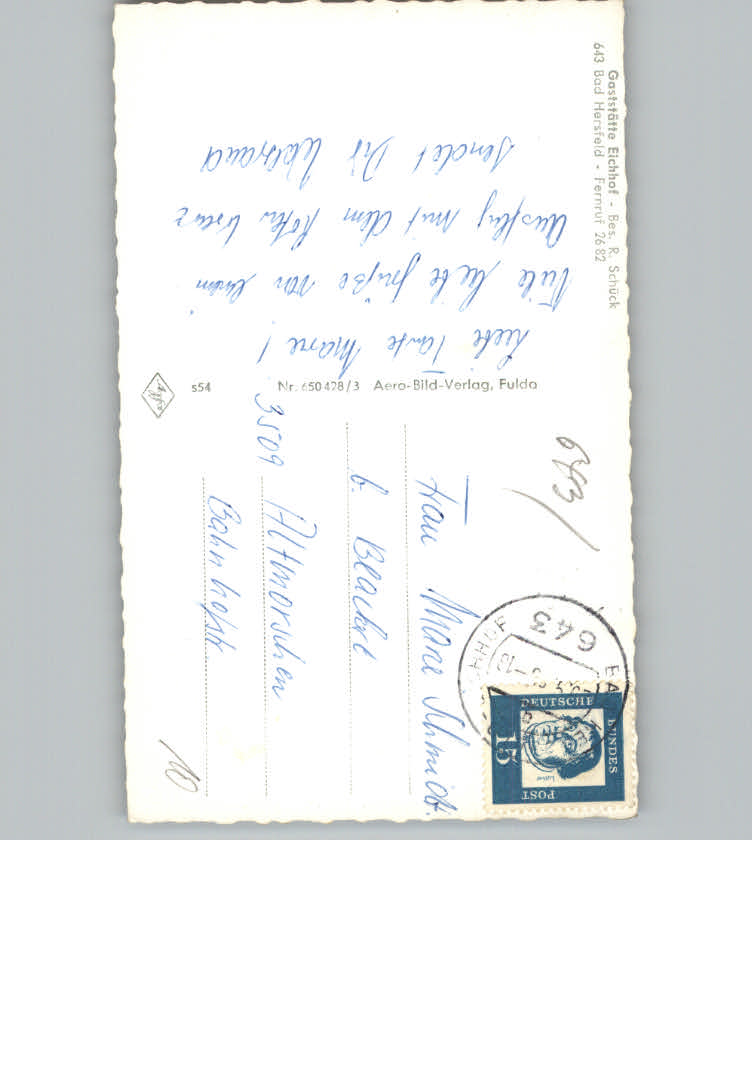 Gaststätte Eichhof - Bes. R. Schück
643 Bad Hersfeld - Fernruf 2682
Liebe Tante Marie!
Viele liebe Grüße von einem
Ausflug mit dem Roten Kreuz
sendet Dir Waltraud
s54
Nr. 650428/3 Aero-Bild-Verlag, Fulda
643/
Frau Marie Schmidt
b.
3509 Altmorschen
Bahnhofstr
10
643
DEUTSCHE
BUNDES
POST
15
Luther